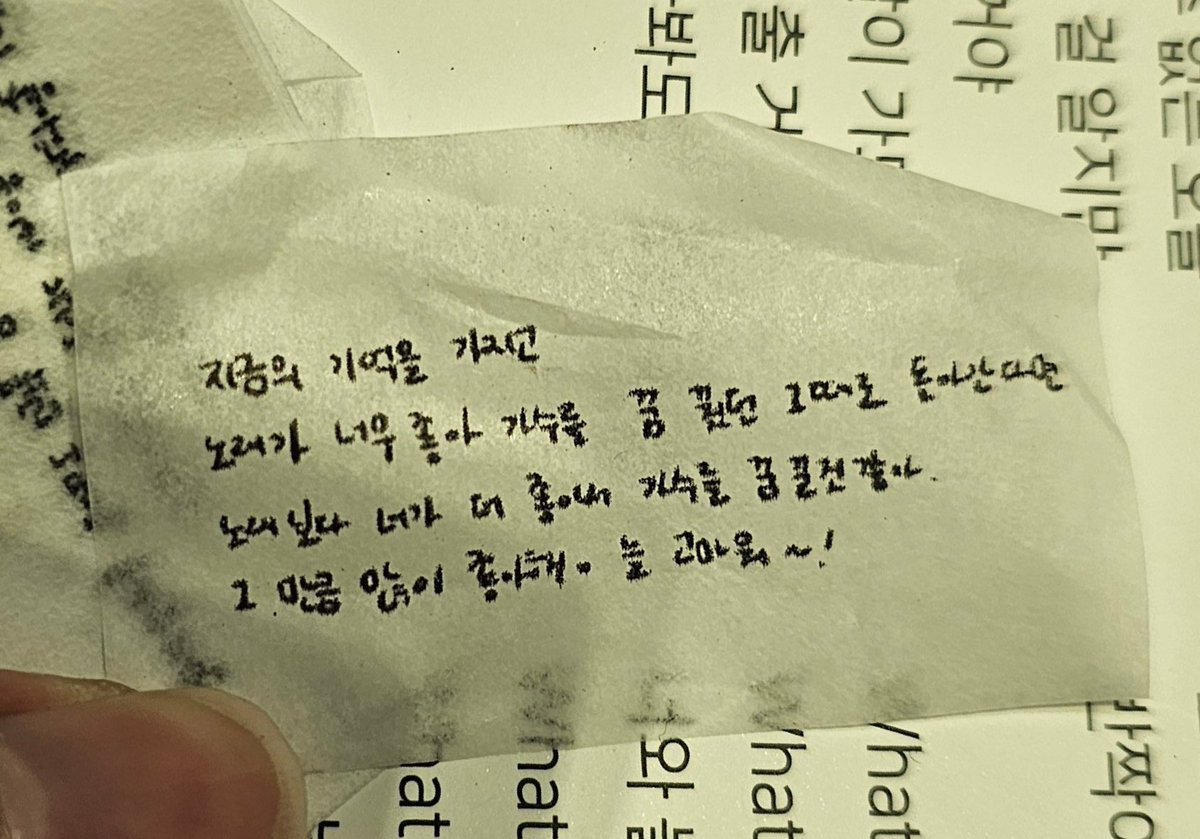 지금의 기억을 가지고
노래가 너무 좋아 가수를 꿈 꿨던 그때로 돌아간다면
노래보다 너가 더 좋아서 가수를 꿈꿀것 같아.
그 만큼 많이 좋아해. 늘 고마워~!
봐도
출 거
이 가
어야
걸 알지만
없는 오늘
hat
What
나와
What
What
반짝